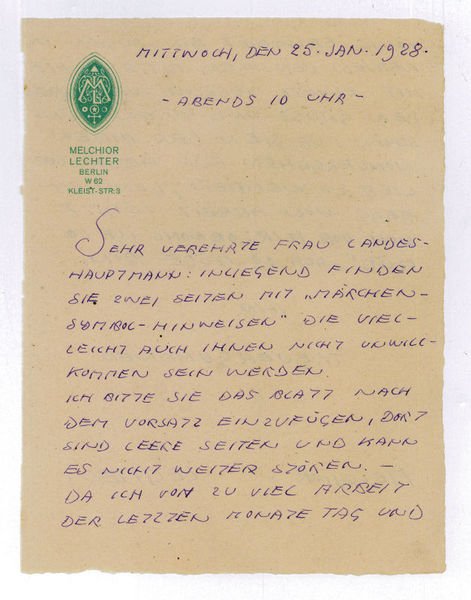 MITTWOCH, DEN 25. JAN. 1928.
- ABENDS 10 UHR -
MELCHIOR
LECHTER
BERLIN
W 62
KLEIST-STR: 3
SEHR VEREHRTE FRAU LANDES-
HAUPTMANN: INLIEGEND FINDEN
SIE ZWEI SEITEN MIT „MÄRCHEN-
SYMBOL-HINWEISEN" DIE VIEL-
LEICHT AUCH IHNEN NICHT UNWILL-
KOMMEN SEIN WERDEN.
ICH BITTE SIE DAS BLATT NACH
DEM VORSATZ EINZUFÜGEN, DORT
SIND LEERE SEITEN UND KANN
ES NICHT WEITER STÖREN. –
DA ICH VON ZU VIEL ARBEIT
DER LETZTEN MONATE TAG UND